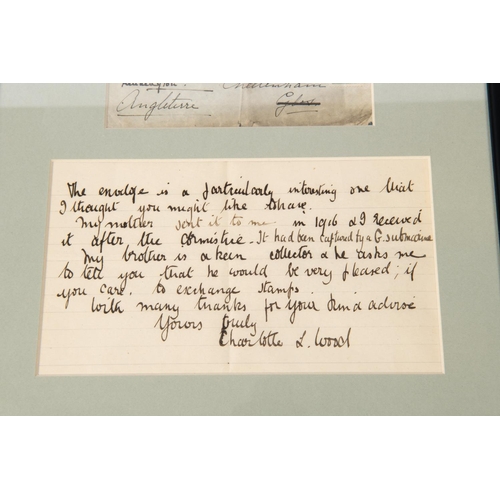 Cheltenham
Angleterre
The envelope is a particularly interesting one that
I thought you might like to have.
My mother sent it to me in 1916 & I received
it after the armistice. It had been captured by a G. submarine
My brother is a keen collector & he asks me
to tell you that he would be very pleased, if
you care. to exchange stamps.
With many thanks for your kind advice
Yours truly
Charlotte L. Wood